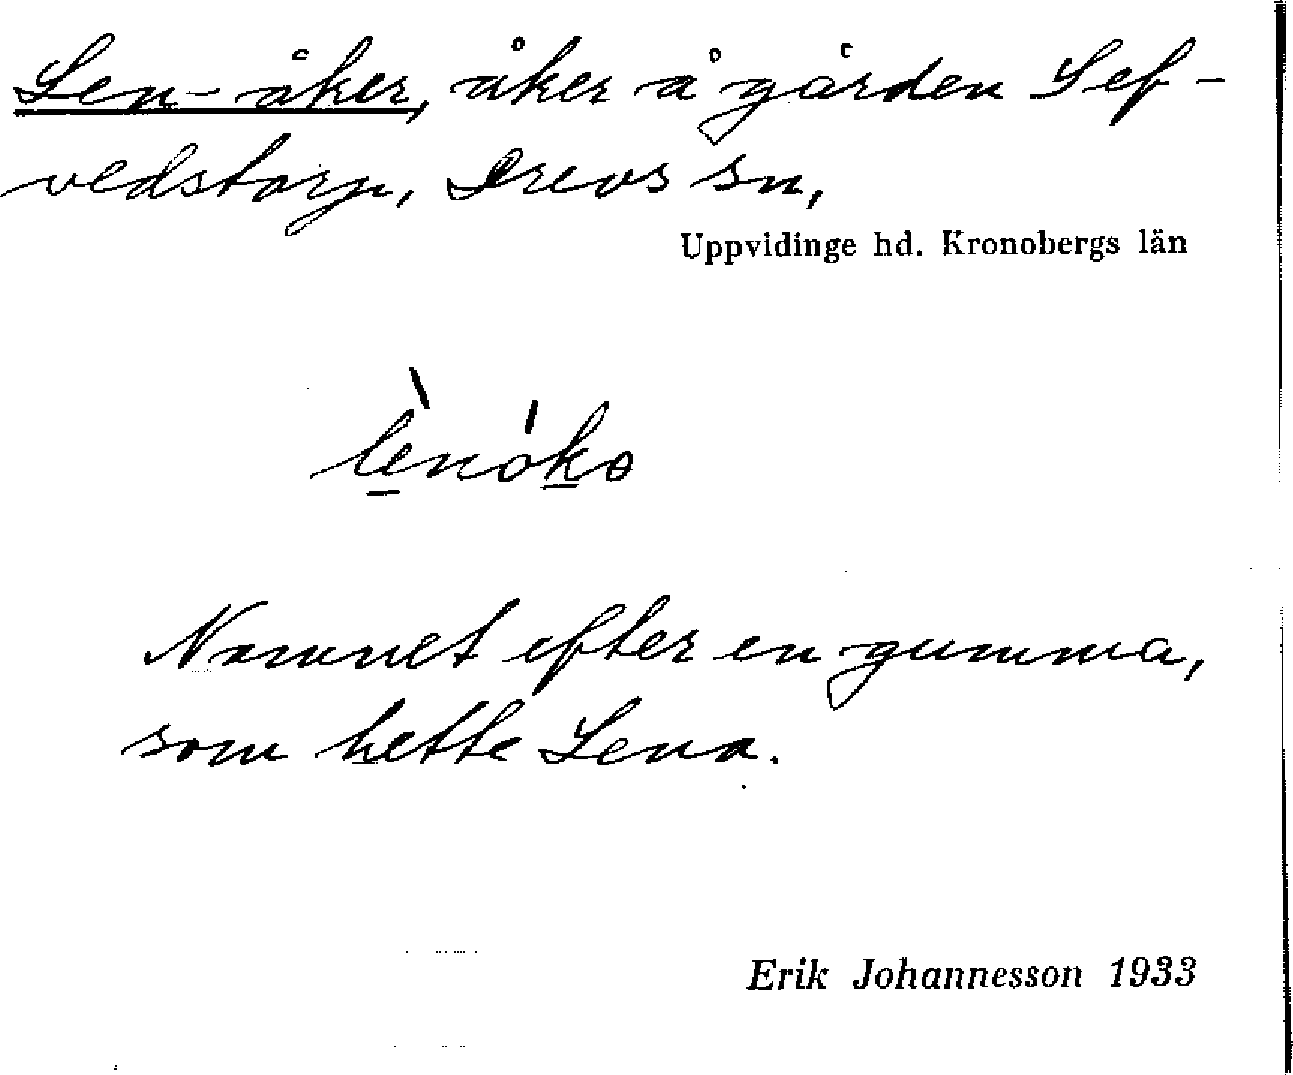 Len-åker, åker å gården Sef-
vedstorp, Drevs sn,
Uppvidinge hd. Kronobergs län
lènókə
Namnet efter en gumma,
som hette Lena.
Erik Johannesson 1933